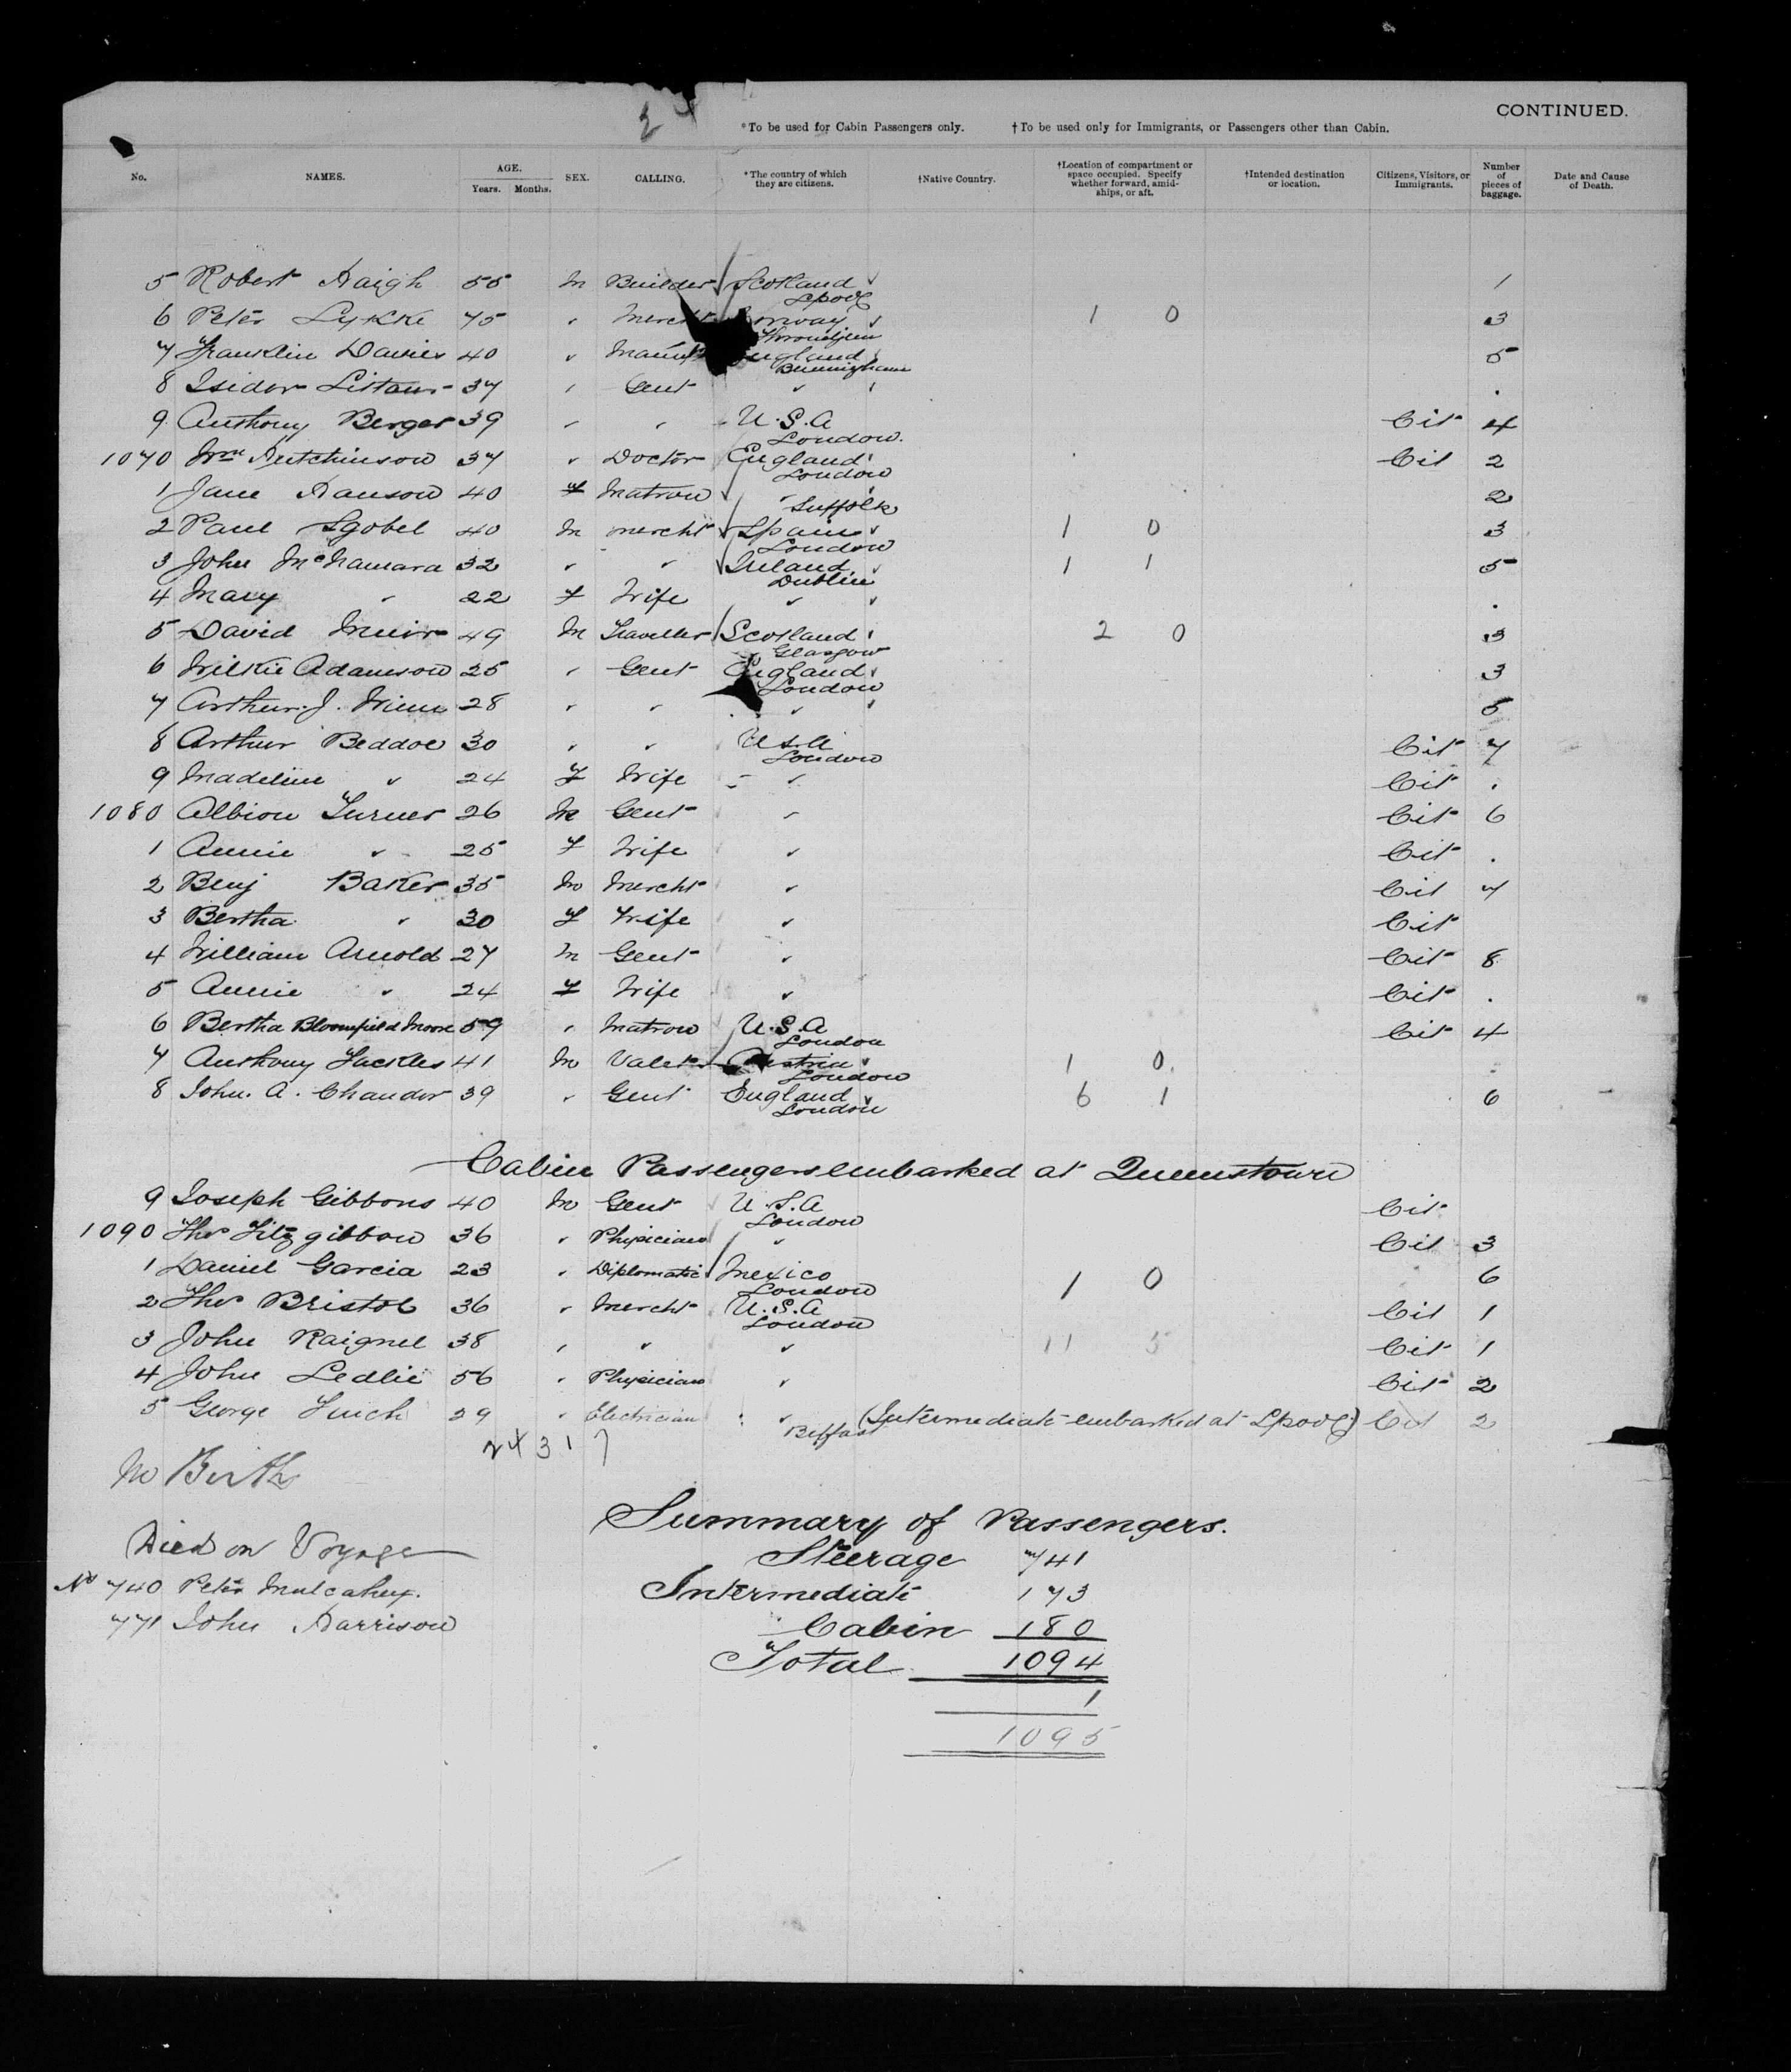 CONTINUED.
*To be used for Cabin Passengers only. †To be used only for Immigrants, or Passengers other than Cabin.
No. NAMES. AGE. Years. Months. SEX. CALLING. *The country of which they are citizens. †Native Country. †Location of compartment or space occupied. Specify whether forward, amidships, or aft. †Intended destination or location. Citizens, Visitors, or Immigrants. Number of pieces of baggage. Date and Cause of Death.
5 Robert Haigh 55 M Builder Scotland 1
Lpool
6 Peter Lykke 45 " Mercht 1 0 3
Throndjem
7 Franklin Davies 40 " England 5
Birmingham
8 Isidor 37 " Gent "
9 Anthony Berger 39 " " U.S.A Cit 4
London.
1070 Wm Hutchinson 37 " Doctor England Cit 2
London
1 Jane Hanson 40 F Matron " 2
Suffolk
2 Paul Sgobel 40 M mercht Spain 1 0 3
London
3 John McNamara 32 " " Ireland 1 1 5
Dublin
4 Mary " 22 F Wife "
5 David Muir 49 M Traveller Scotland 2 0 3
Glasgow
6 Wilkie Adamson 25 " Gent England 3
London
7 Arthur. J. 28 " " " 5
8 Arthur Beddoe 30 " " U.S.A Cit 7
London
9 Madeline " 24 F Wife " Cit
1080 Albion Turner 26 M Gent " Cit 6
1 Annie " 25 F Wife " Cit
2 Benj Baker 35 M Mercht " Cit 7
3 Bertha " 30 F Wife " Cit
4 William Arnold 27 M Gent " Cit 8
5 Annie " 24 F Wife " Cit
6 Bertha Bloomfield Moore 59 " Matron U.S.A Cit 4
London
7 Anthony 41 M Valet Austria 1 0
London
8 John. A. Chandor 39 " Gent England 6 1 6
London
Cabin Passengers embarked at Queenstown
9 Joseph Gibbons 40 M Gent U.S.A Cit
London
1090 Thos Fitzgibbon 36 " Physician " Cit 3
1 Daniel Garcia 23 " Diplomatic Mexico 1 0 6
London
2 Thos Bristol 36 " Mercht U.S.A Cit 1
London
3 John Raignel 38 " " " 11 5 Cit 1
4 John Ledlie 56 " Physician " Cit 2
5 George Finch 29 " Electrician " (Intermediate embarked at Lpool) Cit 2
Belfast
24317
No Birth
Died on Voyage
No 740 Peter Mulcahey.
771 John Harrison
Summary of Passengers.
Steerage 741
Intermediate 173
Cabin 180
Total 1094
1
1095